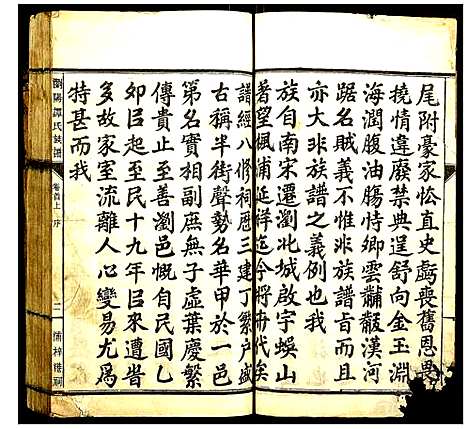 尾附豪家忪直史虧喪舊恩畏
撓情違廢禁典逞舒向金玉淵
海潤腹油腸恃卿雲黼黻漢河
踞名賊義不惟非族譜旨而且
亦大非族譜之義例也我
族自南宋遷瀏北城啟宇蜈山
著望楓浦延祥迄今將卅代矣
譜經八修祠歷三建丁繁戶盛
古稱半街聲勢名華甲於一邑
第名實相副庶無子虛葉慶繁
傳貴止至善瀏邑慨自民國乙
卯巨起至民十九年巨來遭眚
多故家室流離人心變易尤為
特甚而我
瀏陽譚氏族譜
卷首上 序
二